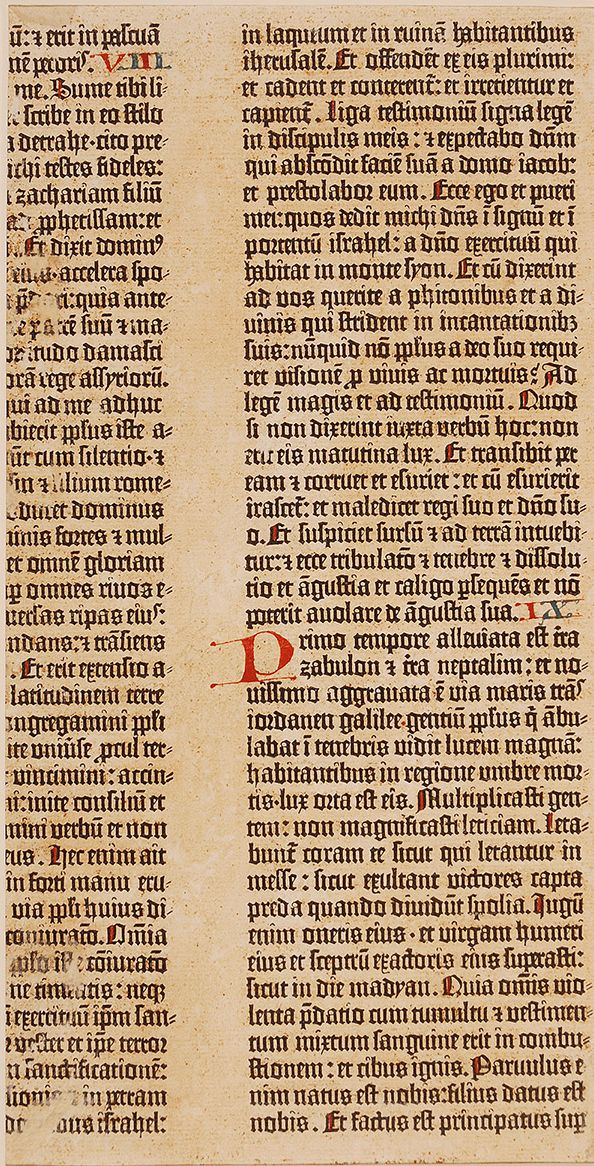 ū: ⁊ erit in pascuā
pecoris. VIII
me. Sume tibi li-
scribe in eo stilo
detrahe·cito pre-
testes fideles:
zachariam filiū
ꝓphetissam: et
Et dixit dominꝰ
accelera spo-
quia ante-
suū ⁊ ma-
damasci
rege assyriorū.
ad me adhuc
ppſus iste a-
cum silentio·⁊
filium rome-
dominus
fortes ⁊ mul-
et omnē gloriam
omnes riuos e-
ripas eius:
⁊ trāsiens
. Et erit extensio a-
latitudinem terre
ppſi
ꝓcul ter-
vincimini: accin-
inite consiliū et
verbū et non
Hec enim ait
in forti manu eru-
via ppſi huius di-
Omīa
cōiuratō
timeatis: neqꝫ
exercituū ipm san-
et ipe terror
sanctificationē:
in petram
israhel:
in laqueum et in ruinā habitantibus
iherusalē. Et offendēt ex eis plurimi:
et cadent et conterent̄: et irretientur et
capient̄. Liga testimoniū signa legē
in discipulis meis: ⁊ expectabo dn̄m
qui abscōdit faciē suā a domo iacob:
et prestolabor eum. Ecce ego et pueri
mei: quos dedit michi dn̄s ī signū et ī
portentū israhel: a dn̄o exercituū qui
habitat in monte syon. Et cū dixerint
ad vos querite a phitonibus et a di-
uinis qui strident in incantationibꝫ
suis: nūquid nō ppſus a deo suo requi-
ret visionē ꝓ viuis ac mortuis? Ad
legē magis et ad testimoniū. Quod
si non dixerint iuxta verbū hoc: non
erit eis matutina lux. Et transibit per
eam ⁊ corruet et esuriet: et cū esurierit
irascet̄: et maledicet regi suo et dn̄o su-
o. Et suspiciet sursū ⁊ ad terrā intuebi-
tur: ⁊ ecce tribulatō ⁊ tenebre ⁊ dissolu-
tio et āgustia et caligo ꝑsequēs et nō
poterit auolare de āgustia sua. IX
Primo tempore alleuiata est tr̄a
zabulon ⁊ tr̄a neptalim: et no-
uissimo aggrauata ē via maris trās
iordanen galilee·gentiū ppſus q̄ ābu-
labat ī tenebris vidit lucem magnā:
habitantibus in regione vmbre mor-
tis·lux orta est eis. Multiplicasti gen-
tem: non magnificasti leticiam. Leta-
bunt̄ coram te sicut qui letantur in
messe: sicut exultant victores capta
preda quando diuidūt spolia. Iugū
enim oneris eius·et virgam humeri
eius et sceptrū exactoris eius superasti:
sicut in die madyan. Quia om̄is vio-
lenta p̄datio cum tumultu ⁊ vestimen-
tum mixtum sanguine erit in combu-
stionem: et cibus ignis. Paruulus e
nim natus est nobis: filius datus est
nobis. Et factus est principatus sup̄